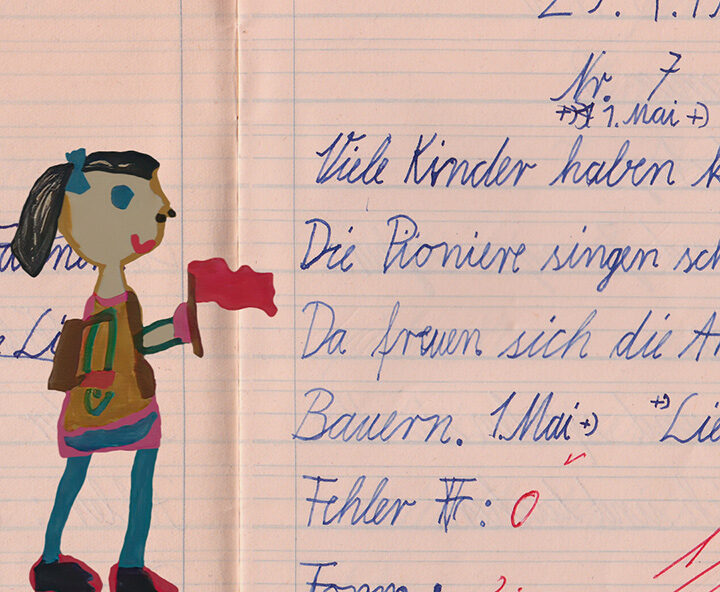 Nr. 7
+) 1. Mai +)
Viele Kinder haben
Die Pioniere singen
Da freuen sich die
Bauern. 1. Mai +) +) Lie
Fehler F: 0
Form: